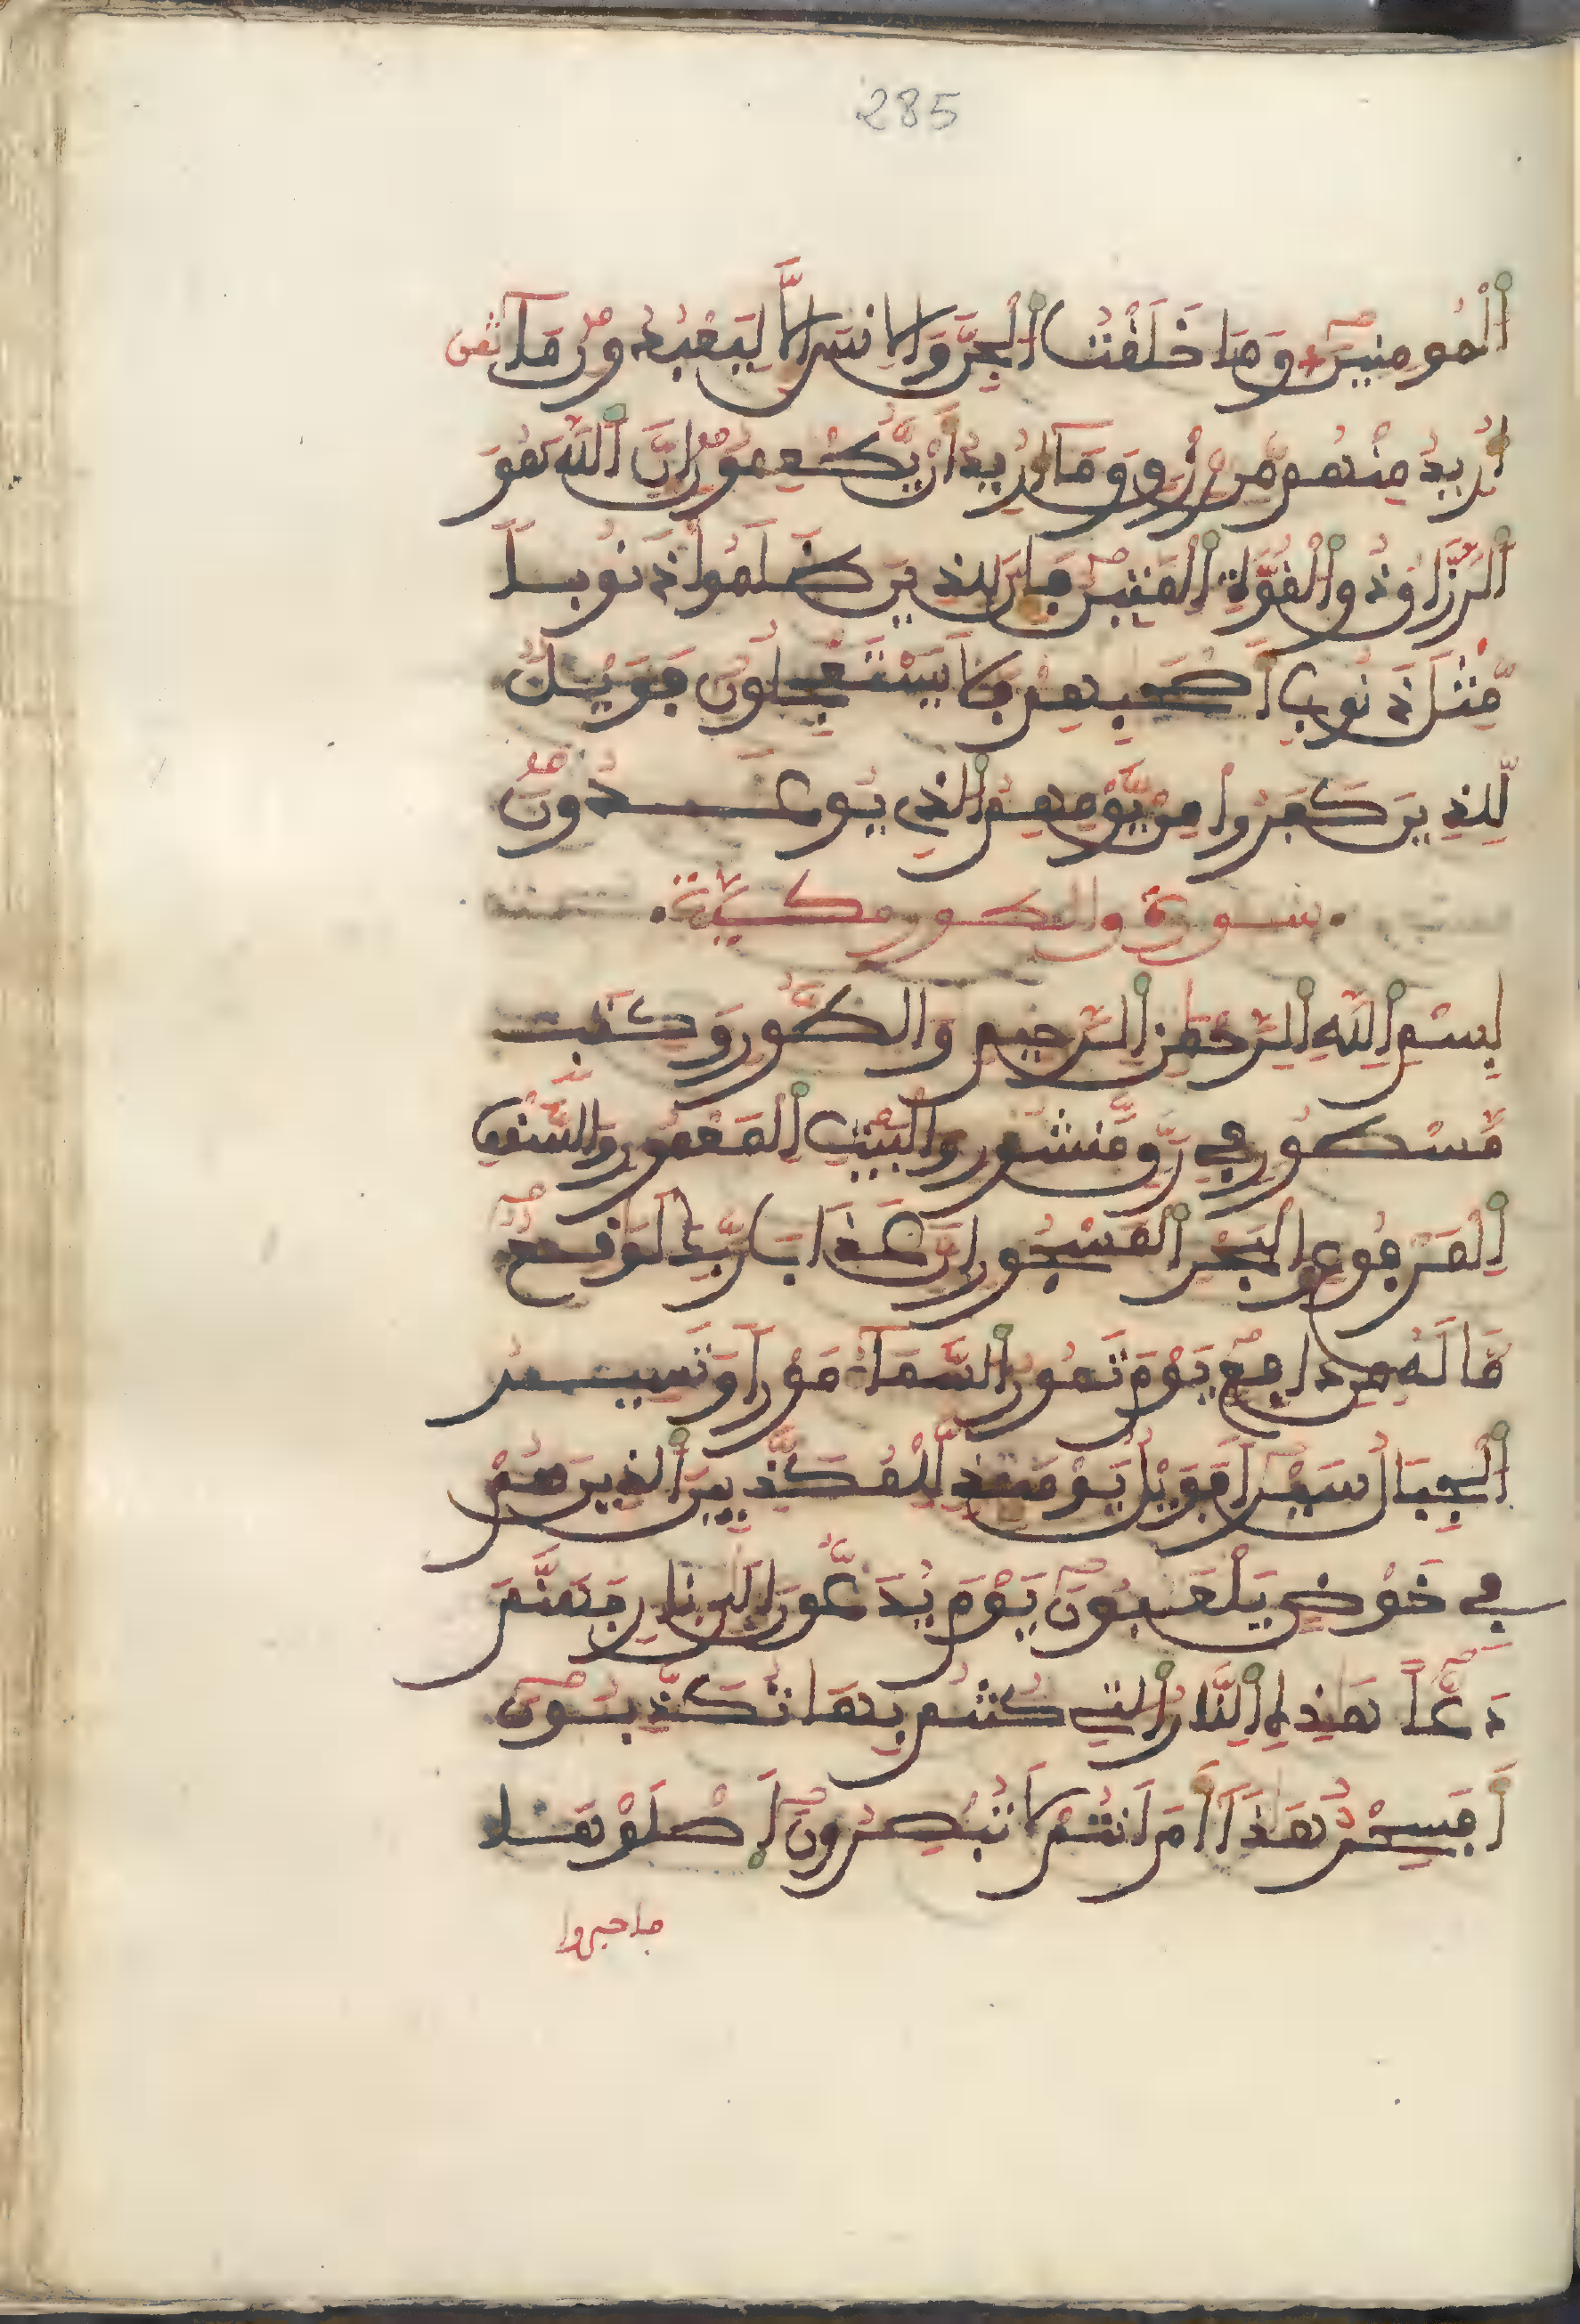 285
اَ۬لْمُومِنِينَ وَمَا خَلَقْتُ اَ۬لْجِنَّ وَالِانسَ إِلَّا لِيَعْبُدُونِ مَآ
ثمن
أُرِيدُ مِنْهُم مِّن رِّزْقٍ وَمَآ أُرِيدُ أَنْ يُّطْعِمُونِ إِنَّ اَ۬للَّهَ هُوَ
اَ۬لرَّزَّاقُ ذُو اُ۬لْقُوَّةِ اِ۬لْمَتِينُ فَإِنَّ لِلذِينَ ظَلَمُوا ذَنُوباً
مِّثْلَ ذَنُوبِ أَصْحَٰبِهِمْ فَلَا يَسْتَعْجِلُونِ فَوَيْلٌ
لِّلذِينَ كَفَرُوا مِنْ يَّوْمِهِمُ اُ۬لذِي يُوعَدُونَ
سورة والطور مكية
بِسْمِ اِ۬للَّهِ اِ۬لرَّحْمَٰنِ اِ۬لرَّحِيمِ وَالطُّورِ وَكِتَٰبٍ
مَّسْطُورٍ فِي رَقٍّ مَّنشُورٍ وَالْبَيْتِ اِ۬لْمَعْمُورِ وَالسَّقْفِ
اِ۬لْمَرْفُوعِ وَالْبَحْرِ اِ۬لْمَسْجُورِ إِنَّ عَذَابَ رَبِّكَ لَوَٰقِعٌ
مَّا لَهُ مِن دَافِعٍ يَوْمَ تَمُورُ اُ۬لسَّمَآءُ مَوْراً وَتَسِيرُ
اُ۬لْجِبَالُ سَيْراً فَوَيْلٌ يَوْمَئِذٍ لِّلْمُكَذِّبِينَ اَ۬لذِينَ هُمْ
فِي خَوْضٍ يَلْعَبُونَ يَوْمَ يُدَعُّونَ إِلَىٰ نَارِ جَهَنَّمَ
دَعّاً هَٰذِهِ اِ۬لنَّارُ اُ۬لتِي كُنتُم بِهَا تُكَذِّبُونَ
أَفَسِحْرٌ هَٰذَآ أَمَ انتُمْ لَا تُبْصِرُونَ اَ۪صْلَوْهَا
فاصبروا